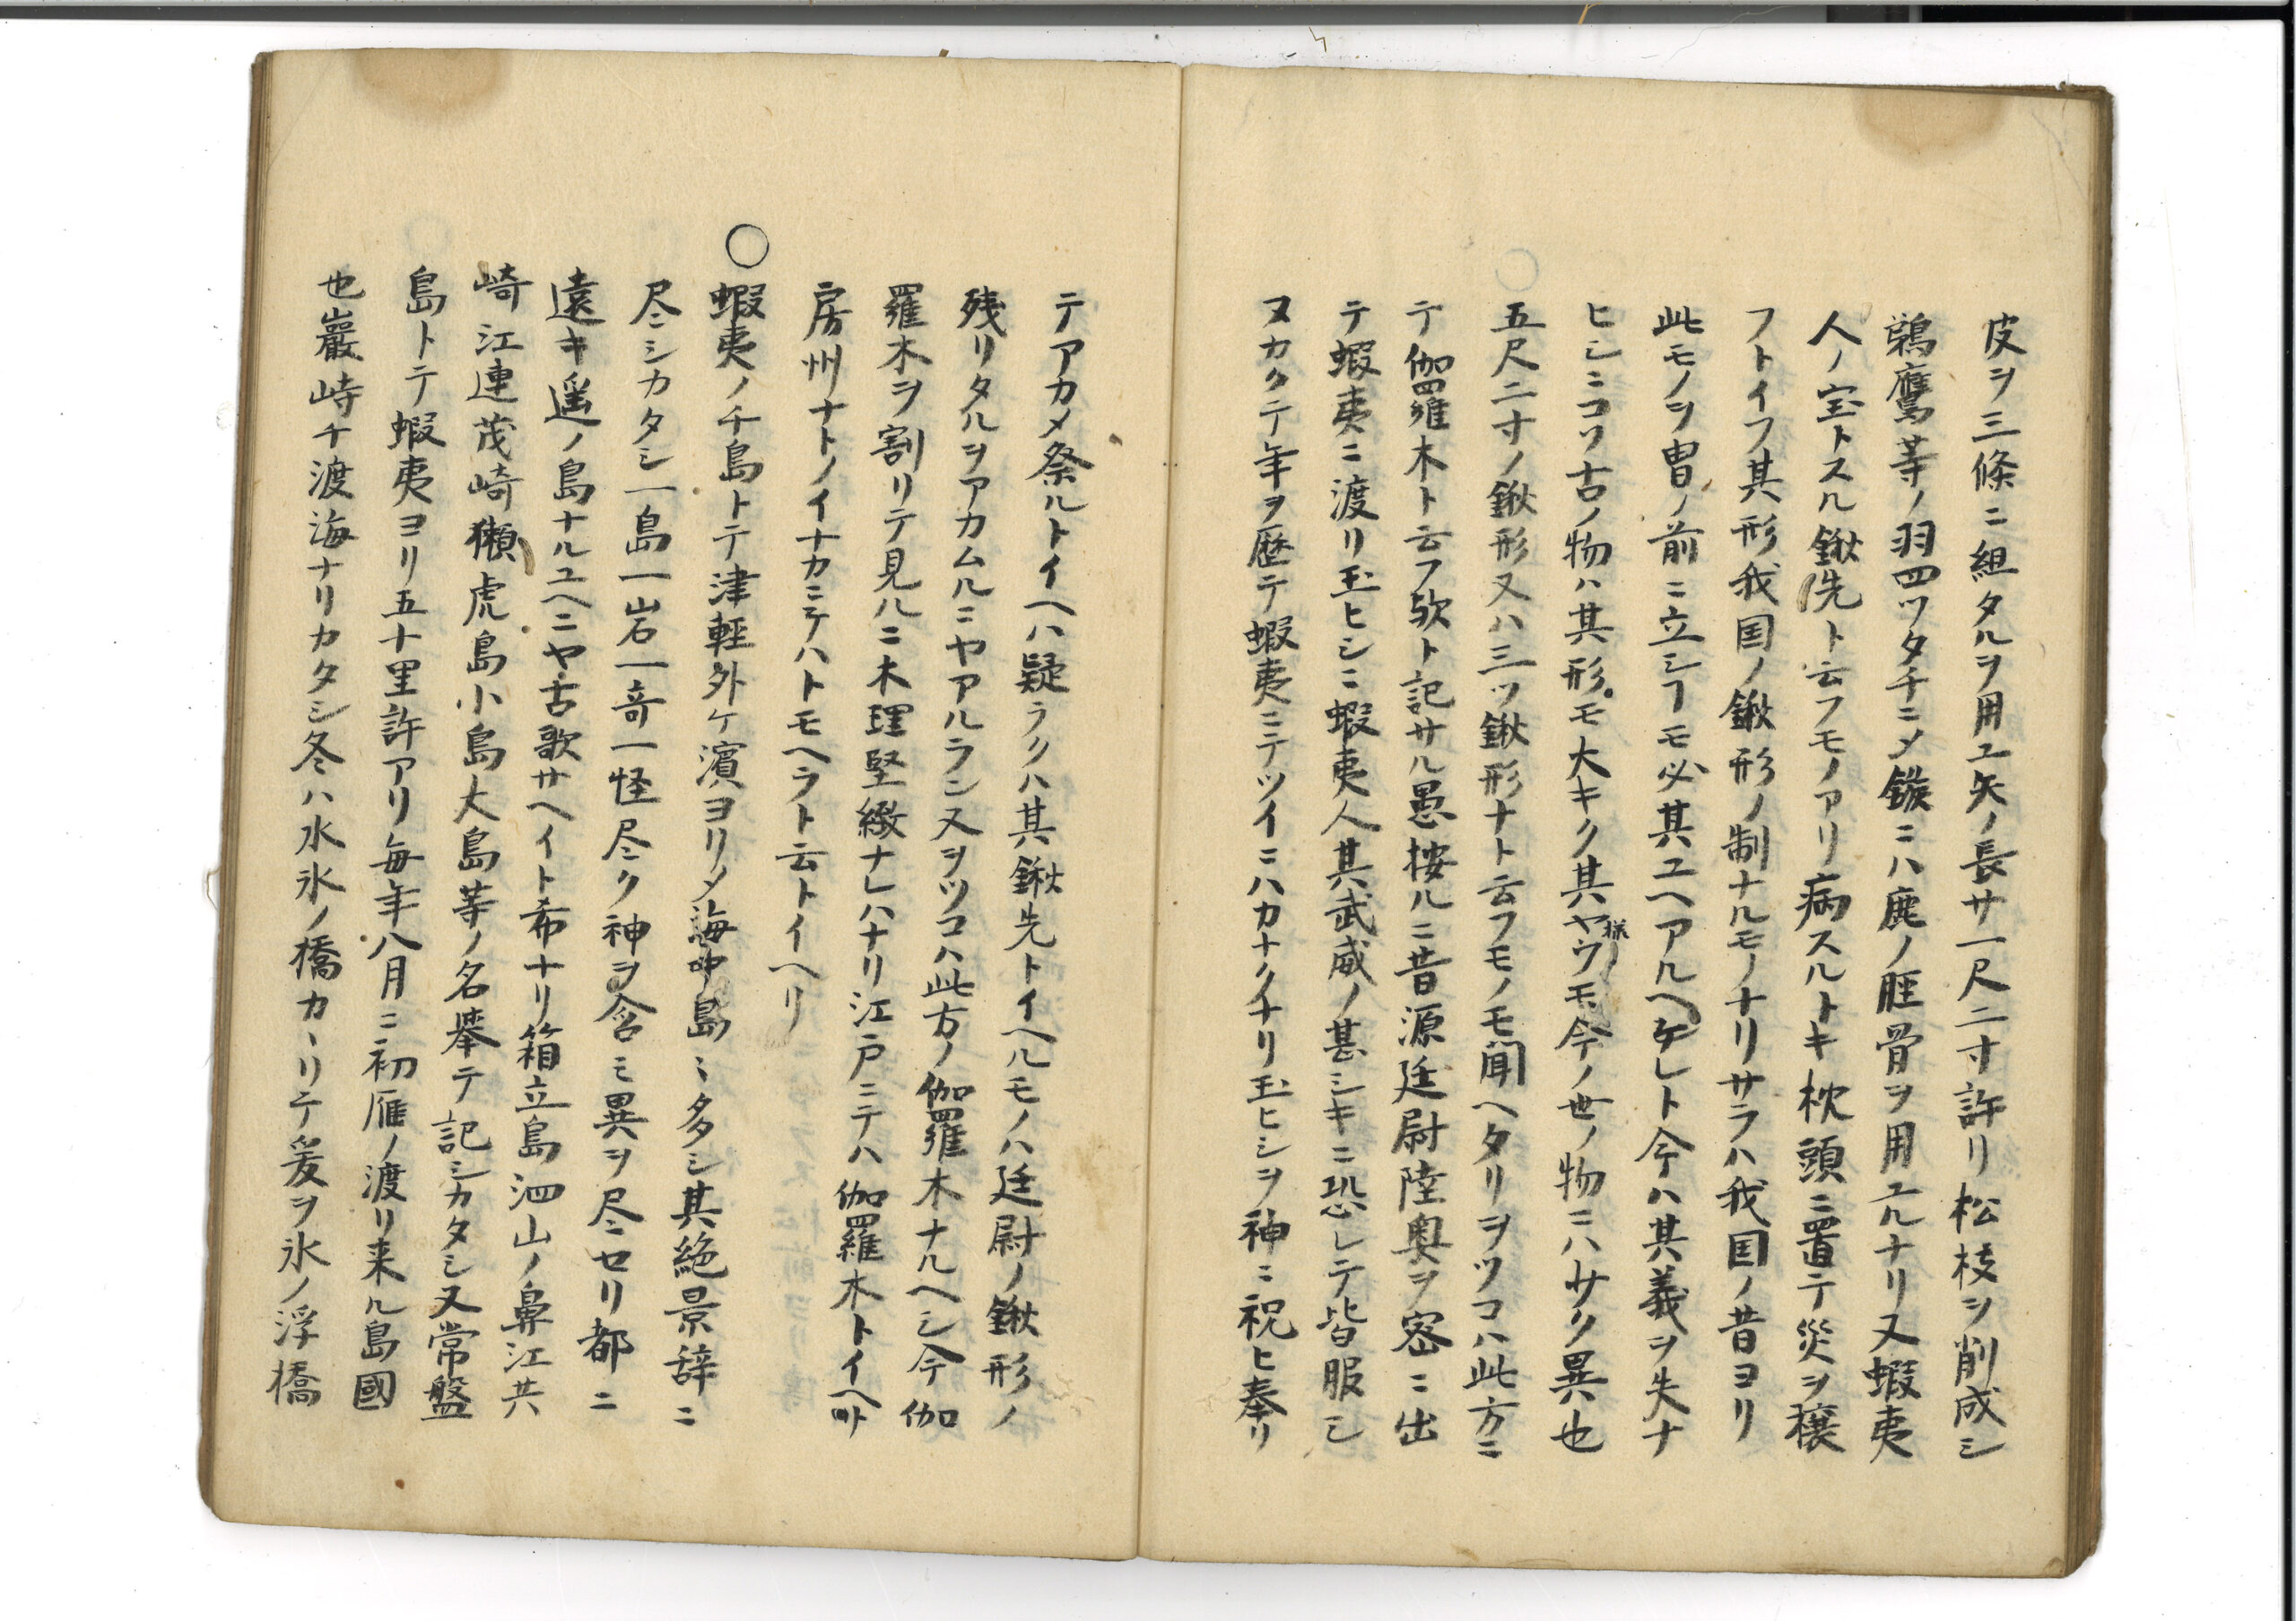 皮ヲ三條ニ組タルヲ用ユ矢ノ長サ一尺二寸許リ松枝ヲ削成シ
鷹等ノ羽四ツタチニメ鏃ニハ鹿ノ脛骨ヲ用ユルナリ又蝦夷
人ノ宝トスル鍬先ト云フモノアリ病スルトキ枕頭ニ置テ災ヲ穣
フトイフ其形我国ノ鍬形ノ制ナルモノナリサラハ我国ノ昔ヨリ
此モノヲ冑ノ前ニ立シヿモ必其ユヘアルヘケレト今ハ其義ヲ失ナ
ヒシニコソ古ノ物ハ其形モ大キク其ヤウ様モ今ノ世ノ物ニハサク異也
五尺二寸ノ鍬形又ハ三ツ鍬形ナト云フモノモ聞ヘタリヲツコハ此方ニ
テ伽羅木ト云フ欤ト記サル愚按ルニ昔源廷尉陸奥ヲ密ニ出
テ蝦夷ニ渡リ玉ヒシニ蝦夷人其武威ノ甚シキニ恐レテ皆服シ
ヌカクテ年ヲ歴テ蝦夷ニテツイニハカナクナリ玉ヒシヲ神ニ祝ヒ奉リ
テアカメ祭ルトイヘハ疑ラクハ其鍬先トイヘルモノハ廷尉ノ鍬形ノ
残リタルヲアカムルニヤアルラン又ヲツコハ此方ノ伽羅木ナルヘシ今伽
羅木ヲ割リテ見ルニ木理堅緻ナレハナリ江戸ニテハ伽羅木トイヘ𪜈
房州ナトノイナカニテハトモヘラト云トイヘリ
〇蝦夷ノ千島トテ津軽外ケ濱ヨリメ海中島ミ多シ其絶景辞ニ
尽シカタシ一島一岩一奇一怪尽ク神ヲ含モ異ヲ尽セリ都ニ
遠キ遥ノ島ナルユヘニヤ古歌サヘイト希ナリ箱立島泗山ノ鼻江共
崎江連茂崎獺虎島小島大島等ノ名挙テ記シカタシ又常盤
島トテ蝦夷ヨリ五十里許アリ毎年八月ニ初雁ノ渡リ来ル島國
也巖峙チ渡海ナリカタシ冬ハ水氷ノ橋カヽリテ爰ヲ氷ノ浮橋